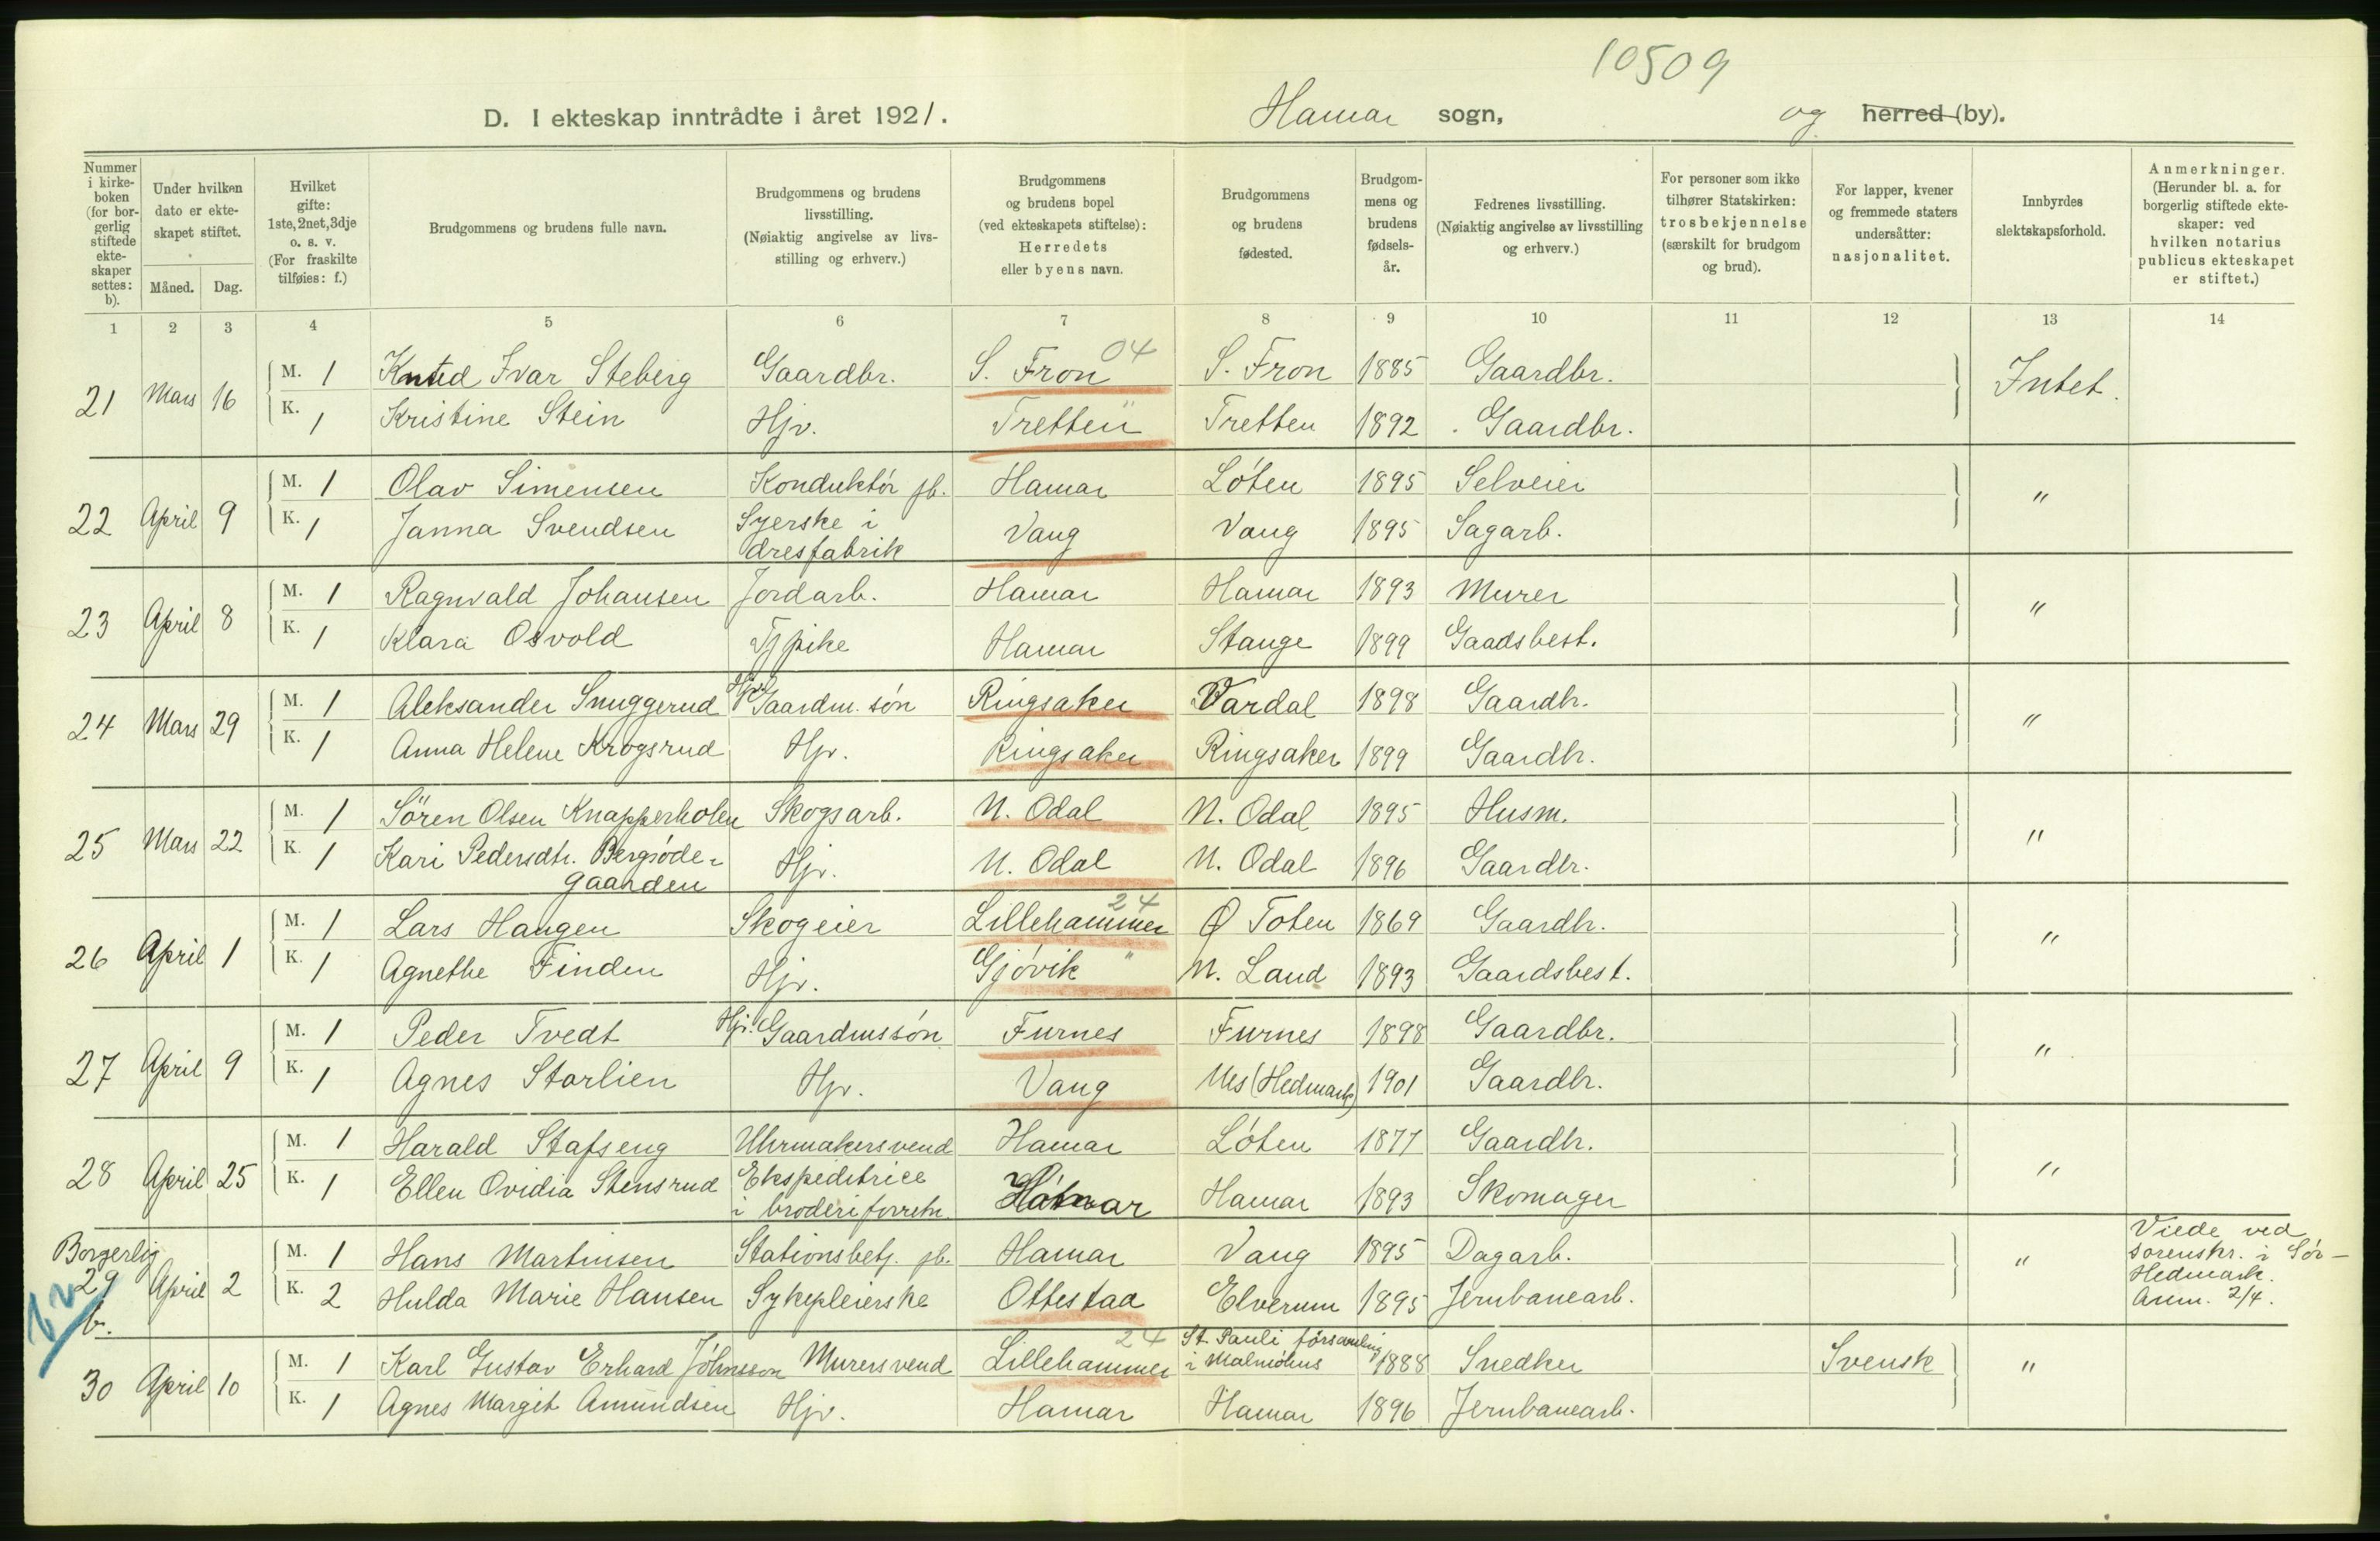 10509
D. I ekteskap inntrådte i året 1921. Hamar sogn, og herred (by).
Nummer i kirkeboken (for borgerlig stiftede ekteskaper settes: b).
Under hvilken dato er ekteskapet stiftet. Måned. Dag.
Hvilket gifte: 1ste, 2net, 3dje o. s. v. (For fraskilte tilføies: f.)
Brudgommens og brudens fulle navn.
Brudgommens og brudens livsstilling. (Nøiaktig angivelse av livsstilling og erhverv.)
Brudgommens og brudens bopel (ved ekteskapets stiftelse): Herredets eller byens navn.
Brudgommens og brudens fødested.
Brudgommens og brudens fødselsår.
Fedrenes livsstilling. (Nøiaktig angivelse av livsstilling og erhverv.)
For personer som ikke tilhører Statskirken: trosbekjennelse (særskilt for brudgom og brud).
For lapper, kvener og fremmede staters undersåtter: nasjonalitet.
Innbyrdes slektskapsforhold.
Anmerkninger. (Herunder bl. a. for borgerlig stiftede ekteskaper: ved hvilken notarius publicus ekteskapet er stiftet.)
1 2 3 4 5 6 7 8 9 10 11 12 13 14
21 Mars 16 M. 1 Knud Ivar Steberg Gaardbr. S. Fron 04 S. Fron 1885 Gaardbr. Intet.
K. 1 Kristine Stein Hjv. Tretten " Tretten 1892 Gaardbr.
22 April 9 M. 1 Olav Simensen Konduktør jb. Hamar Løten 1895 Selveier "
K. 1 Janna Svendsen Syerske i dresfabrik Vang Vang 1895 Sagarb.
23 April 8 M. 1 Ragnvald Johansen Jordarb. Hamar Hamar 1893 Murer "
K. 1 Klara Osvold Tj pike Hamar Stange 1899 Gaadsbest.
24 Mars 29 M. 1 Aleksander Snuggerud Hjv Gaardm. søn Ringsaker Vardal 1898 Gaardbr. "
K. 1 Anna Helene Krogsrud Hjv. Ringsaker Ringsaker 1899 Gaardbr.
25 Mars 22 M. 1 Sören Olsen Knapperholen Skogsarb. N. Odal N. Odal 1895 Husm. "
K. 1 Kari Pedersdtr. Bergsødegaarden Hjv. N. Odal N. Odal 1896 Gaardbr.
26 April 1 M. 1 Lars Haugen Skogeier Lillehammer 24 Ø Toten 1869 Gaardbr. "
K. 1 Agnethe Finden Hjv. Gjøvik " N. Land 1893 Gaardsbest.
27 April 9 M. 1 Peder Tvedt Hjv. Gaardmssøn Furnes Furnes 1898 Gaardbr. "
K. 1 Agnes Storlien Hjv. Vang Nes (Hedmark) 1901 Gaardbr.
28 April 25 M. 1 Harald Stafseng Uhrmakersvend Hamar Løten 1877 Gaardbr. "
K. 1 Ellen Ovidia Stensrud Ekspeditrice i broderiforretn. Hamar Hamar 1893 Skomager
Borgerlig
29 b. April 2 M. 1 Hans Martinsen Stationsbetj. jb. Hamar Vang 1895 Dagarb. " Viede ved sorenskr. i Sør-Hedmark. Anm. 2/4.
K. 2 Hulda Marie Hansen Sykepleierske Ottestad Elverum 1895 Jernbanearb.
30 April 10 M. 1 Karl Gustav Erhard Jöhnsson Murersvend Lillehammer 24 St. Pauli församling i Malmöhus 1888 Snedker Svensk "
K. 1 Agnes Margit Amundsen Hjv. Hamar Hamar 1896 Jernbanearb.